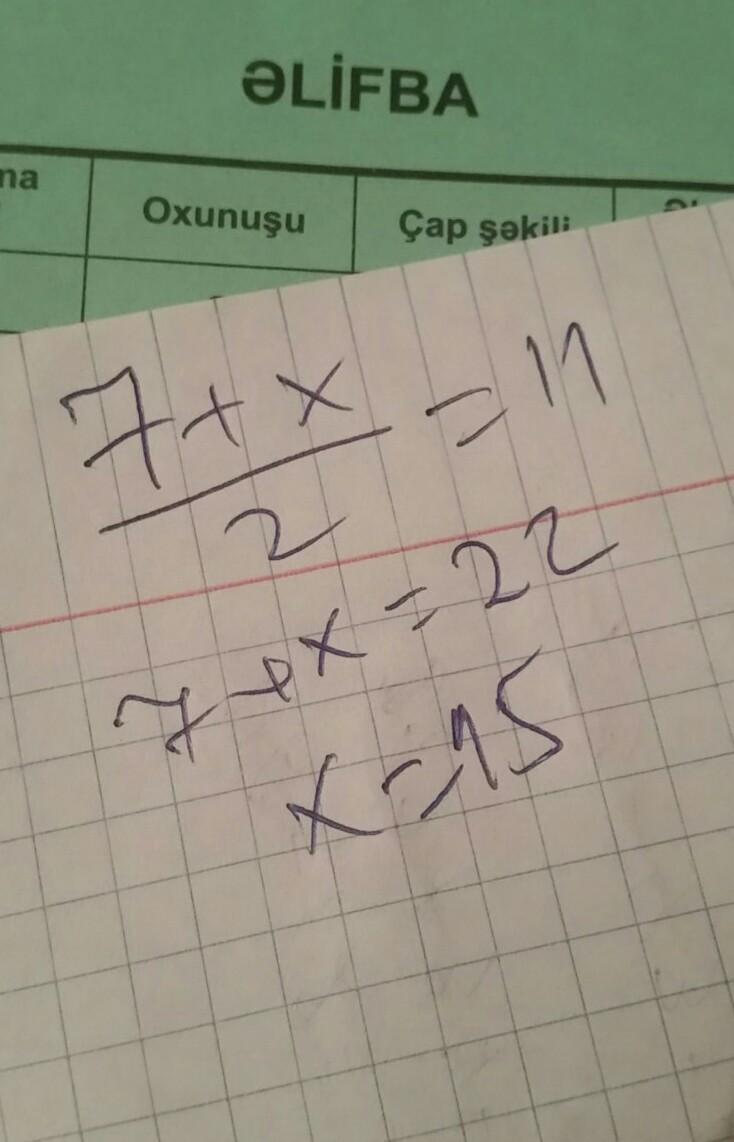 ƏLİFBA
Oxunuşu Çap şəkili
7 + x / 2 = 11
7 + x = 22
x = 15